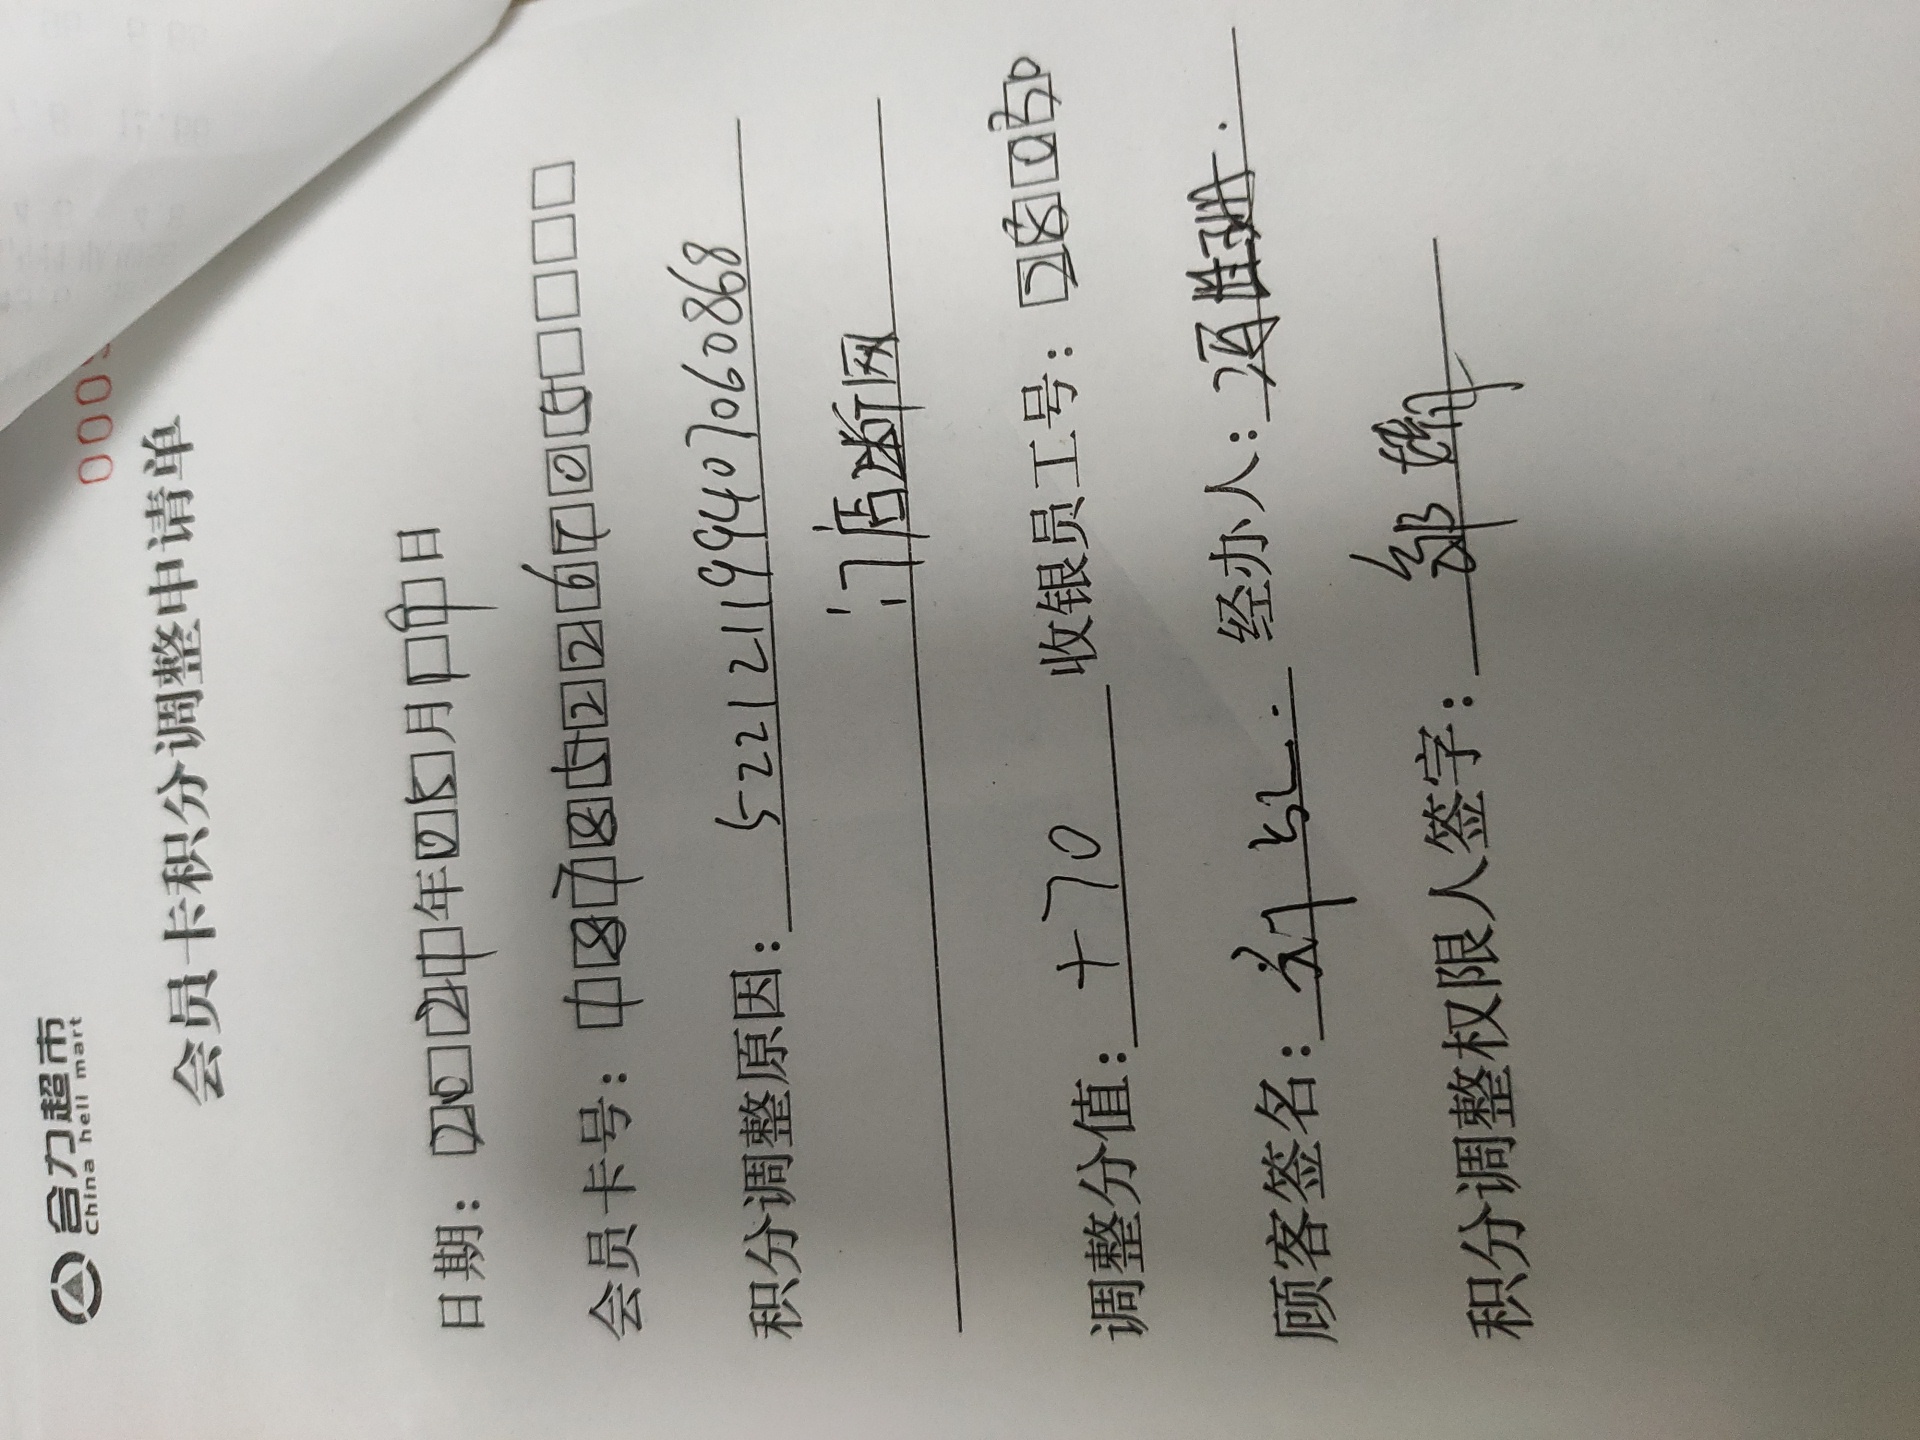 合力超市
China hell mart
0000
会员卡积分调整申请单
日期：2021年05月19日
会员卡号：18785226705
积分调整原因：522121199407060868
门店断网
调整分值：+70 收银员工号：28030
顾客签名： 经办人：
积分调整权限人签字：邹